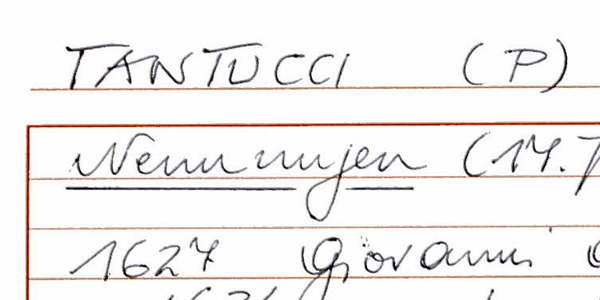 TANTUCCI (P)
Nennungen (17.
1627 Giovanni